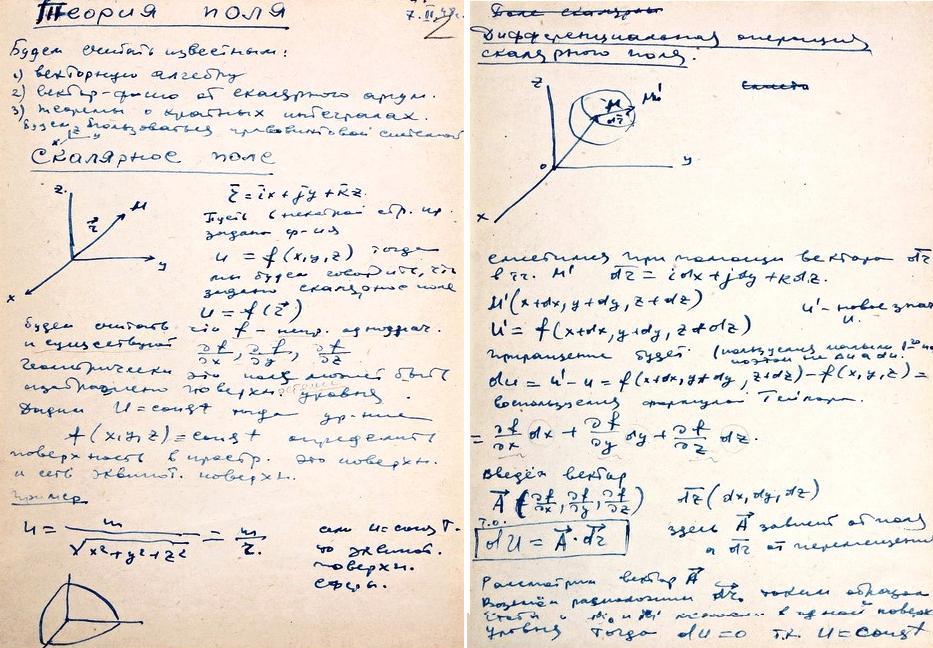 Теория поля
7.III.48г.
2
Будем считать известным:
1) векторную алгебру
2) вектор-фцию от скалярного аргум.
3) теоремы о кратных интегралах.
Будем пользоваться правовинтовой системой
z y
x
Скалярное поле
z
M
r⃗
y
x
r̄ = īx + j̄y + k̄z.
Пусть в некотрой стр. пр.
задана ф-ия
u = f(x,y,z) тогда
мы будем говорить, что
задано скалярное поле
u = f(r⃗)
Будем считать что f – непр. однознач.
и существуют ∂f/∂x, ∂f/∂y, ∂f/∂z
Геометрически это поле может быть
изображено поверхн. уровня.
Дадим U = const тогда ур-ние
f(x,y,z) = const определит
поверхность в простр. это поверхн.
и есть эквипот. поверхн.
Пример
u = m/√x²+y²+z² = m/r.
если u = const
то эквипот.
поверхн.
сферы.
Поле скалярное
Дифференциальная операция
скалярного поля.
z
M
M'
dr̄
o
y
x
сместимся при помощи вектора d̄r̄
в тч. M' d̄r̄ = idx + jdy + kdz.
M'(x+dx, y+dy, z+dz)
u' – новое знач
u.
u' = f(x+dx, y+dy, z+dz)
Приращение будет
поэтому не Δu а du.
du = u' – u = f(x+dx, y+dy, z+dz) – f(x,y,z) =
воспользуемся формулой Тейлора.
= ∂f/∂x dx + ∂f/∂y dy + ∂f/∂z dz.
Введём вектор
A⃗ (∂f/∂x, ∂f/∂y, ∂f/∂z) d̄r̄ (dx, dy, dz)
т.о.
dU = A⃗·d̄r̄
здесь A⃗ зависит от поля
а d̄r̄ от перемещения
Рассмотрим вектор A⃗
Возьмём таким образом
чтобы в одной поверх
уровня тогда du = 0 т.к. U = const